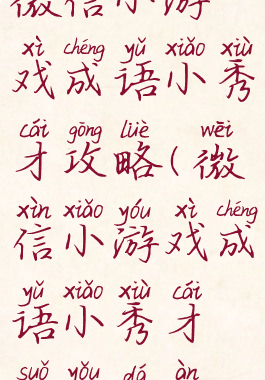 微信小游
xì chéng yǔ xiǎo xiù
戏成语小秀
cái gōng lüè wēi
才攻略(微
xìn xiǎo yóu xì chéng
信小游戏成
yǔ xiǎo xiù cái
语小秀才
suǒ yǒu dá àn